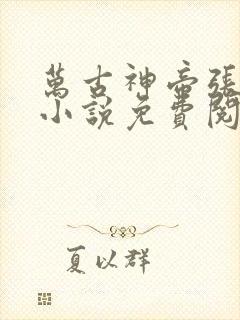 萬古神帝張
小說免費閱
夏以群